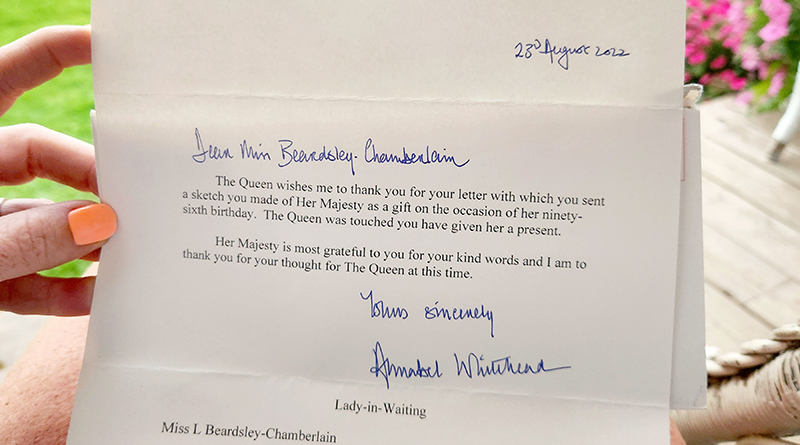 23rd August 2022
Dear Miss Beardsley-Chamberlain
The Queen wishes me to thank you for your letter with which you sent
a sketch you made of Her Majesty as a gift on the occasion of her ninety-
sixth birthday. The Queen was touched you have given her a present.
Her Majesty is most grateful to you for your kind words and I am to
thank you for your thought for The Queen at this time.
Yours sincerely
Annabel Whitehead
Lady-in-Waiting
Miss L Beardsley-Chamberlain